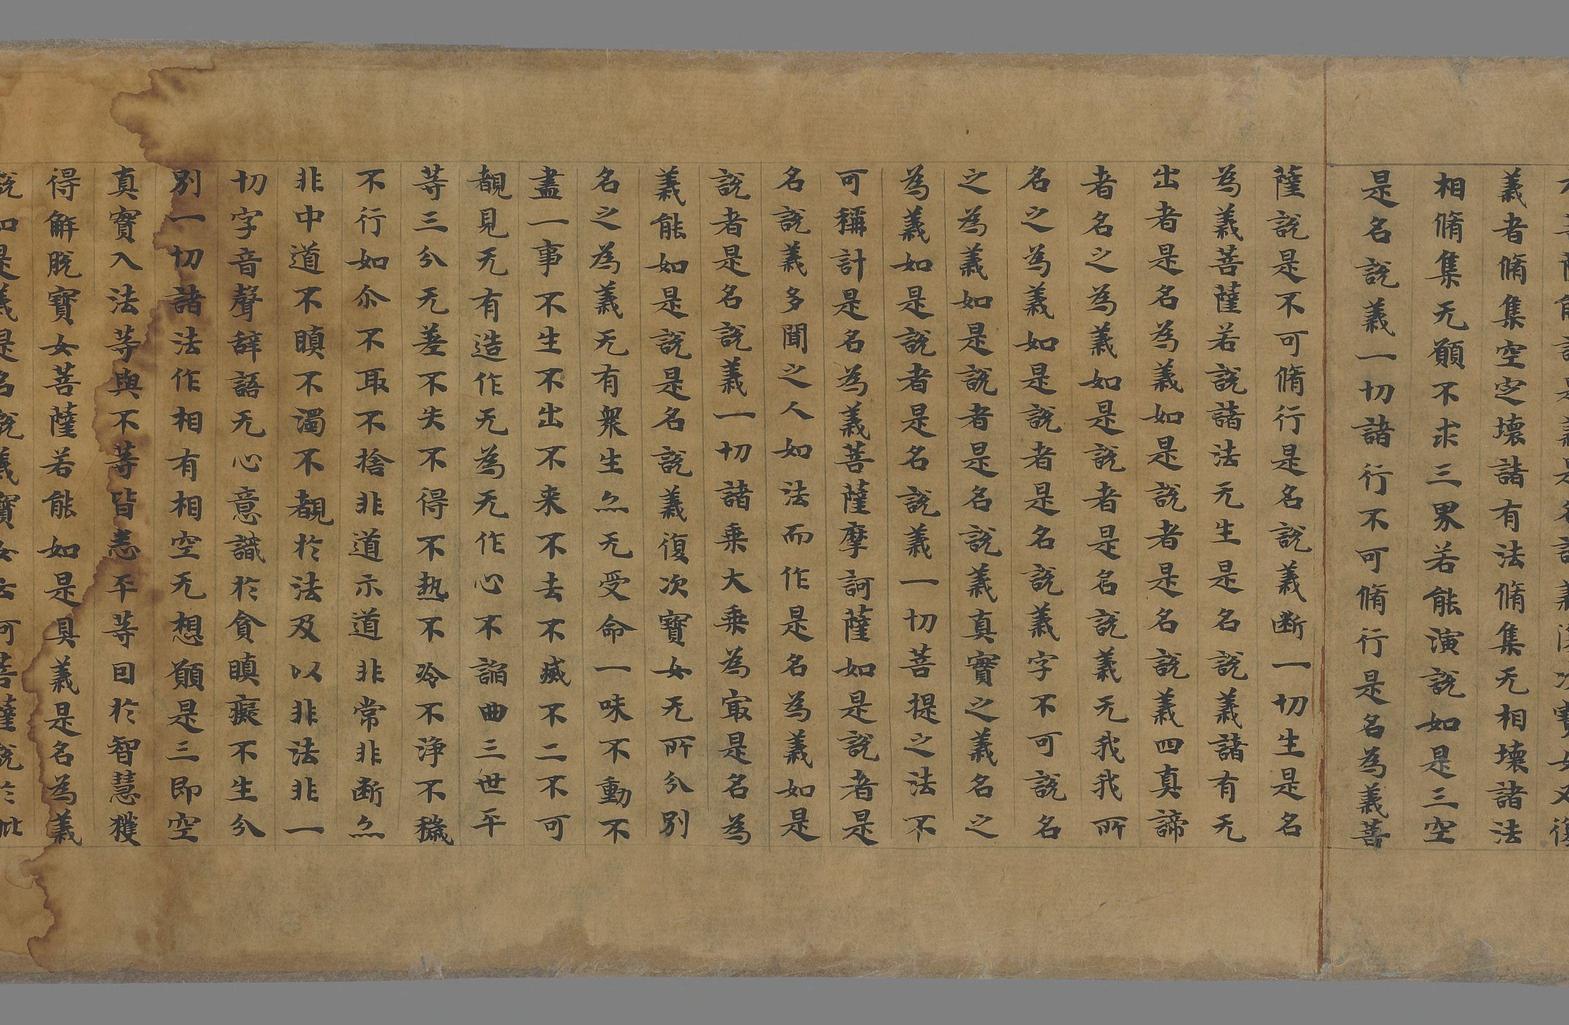 義者脩集空定壞諸有法脩集无相壞諸法
相脩集无願不求三界若能演說如是三空
是名說義一切諸行不可脩行是名為義菩
薩說是不可脩行是名說義断一切生是名
為義菩薩若說諸法无生是名說義諸有无
出者是名為義如是說者是名說義四真諦
者名之為義如是說者是名說義无我我所
名之為義如是說者是名說義字不可說名
之為義如是說者是名說義真實之義名之
為義如是說者是名說義一切菩提之法不
可稱計是名為義菩薩摩訶薩如是說者是
名說義多聞之人如法而作是名為義如是
說者是名說義一切諸乗大乗為㝡是名為
義能如是說是名說義復次寶女无所分別
名之為義无有衆生亦无受命一味不動不
盡一事不生不出不来不去不滅不二不可
覩見无有造作无為无作心不諂曲三世平
等三分无差不失不得不热不冷不淨不穢
不行如尒不取不捨非道示道非常非断亦
非中道不瞋不濁不覩於法及以非法非一
切字音聲辝語无心意識於貪瞋癡不生分
別一切諸法作相有相空无想願是三即空
真實入法等與不等皆悉平等回於智慧獲
得解脫寶女菩薩若能如是具義是名為義
說如是義是名說義寶女云何菩薩說於